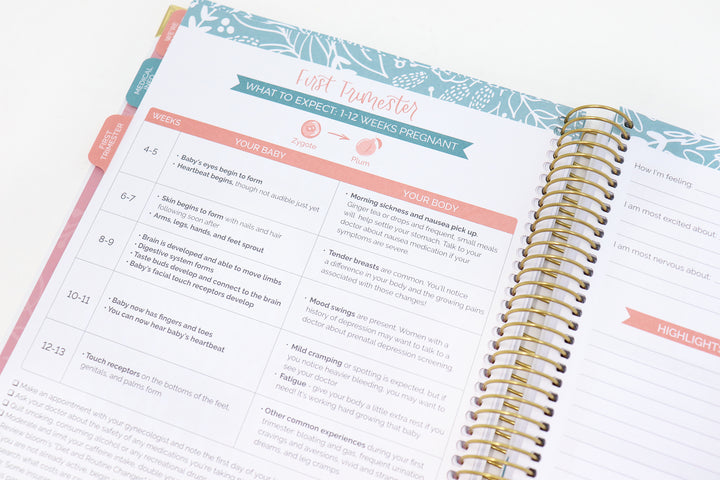 WE'RE
MEDICAL
INFO
FIRST
TRIMESTER
First Trimester
WHAT TO EXPECT: 1-12 WEEKS PREGNANT
Zygote
Plum
WEEKS
YOUR BABY
YOUR BODY
4-5
• Baby's eyes begin to form
• Heartbeat begins, though not audible just yet
• Morning sickness and nausea pick up.
Ginger tea or drops and frequent, small meals
will help settle your stomach. Talk to your
doctor about nausea medication if your
symptoms are severe.
6-7
• Skin begins to form with nails and hair
following soon after
• Arms, legs, hands, and feet sprout
• Tender breasts are common. You'll notice
a difference in your body and the growing pains
associated with those changes!
8-9
• Brain is developed and able to move limbs
• Digestive system forms
• Taste buds develop and connect to the brain
• Baby's facial touch receptors develop
• Mood swings are present. Women with a
history of depression may want to talk to a
doctor about prenatal depression screening
10-11
• Baby now has fingers and toes
• You can now hear baby's heartbeat
• Mild cramping or spotting is expected, but if
you notice heavier bleeding, you may want to
see your doctor
• Fatigue - give your body a little extra rest if you
need! It's working hard growing that baby.
12-13
• Touch receptors on the bottoms of the feet,
genitals, and palms form
• Other common experiences during your first
trimester: bloating and gas, frequent urination,
cravings and aversions, vivid and strange
dreams, and leg cramps.
Make an appointment with your gynecologist and note the first day of your
Ask your doctor about the safety of any medications you're taking
Quit smoking, consuming alcohol or any recreational drugs
Moderate and limit your caffeine intake, double your
Review bloom's "Diet and Routine Changes"
you are not already active, begin
what costs are
Some insurance
How I'm feeling:
I am most excited about:
I am most nervous about:
HIGHLIGHTS